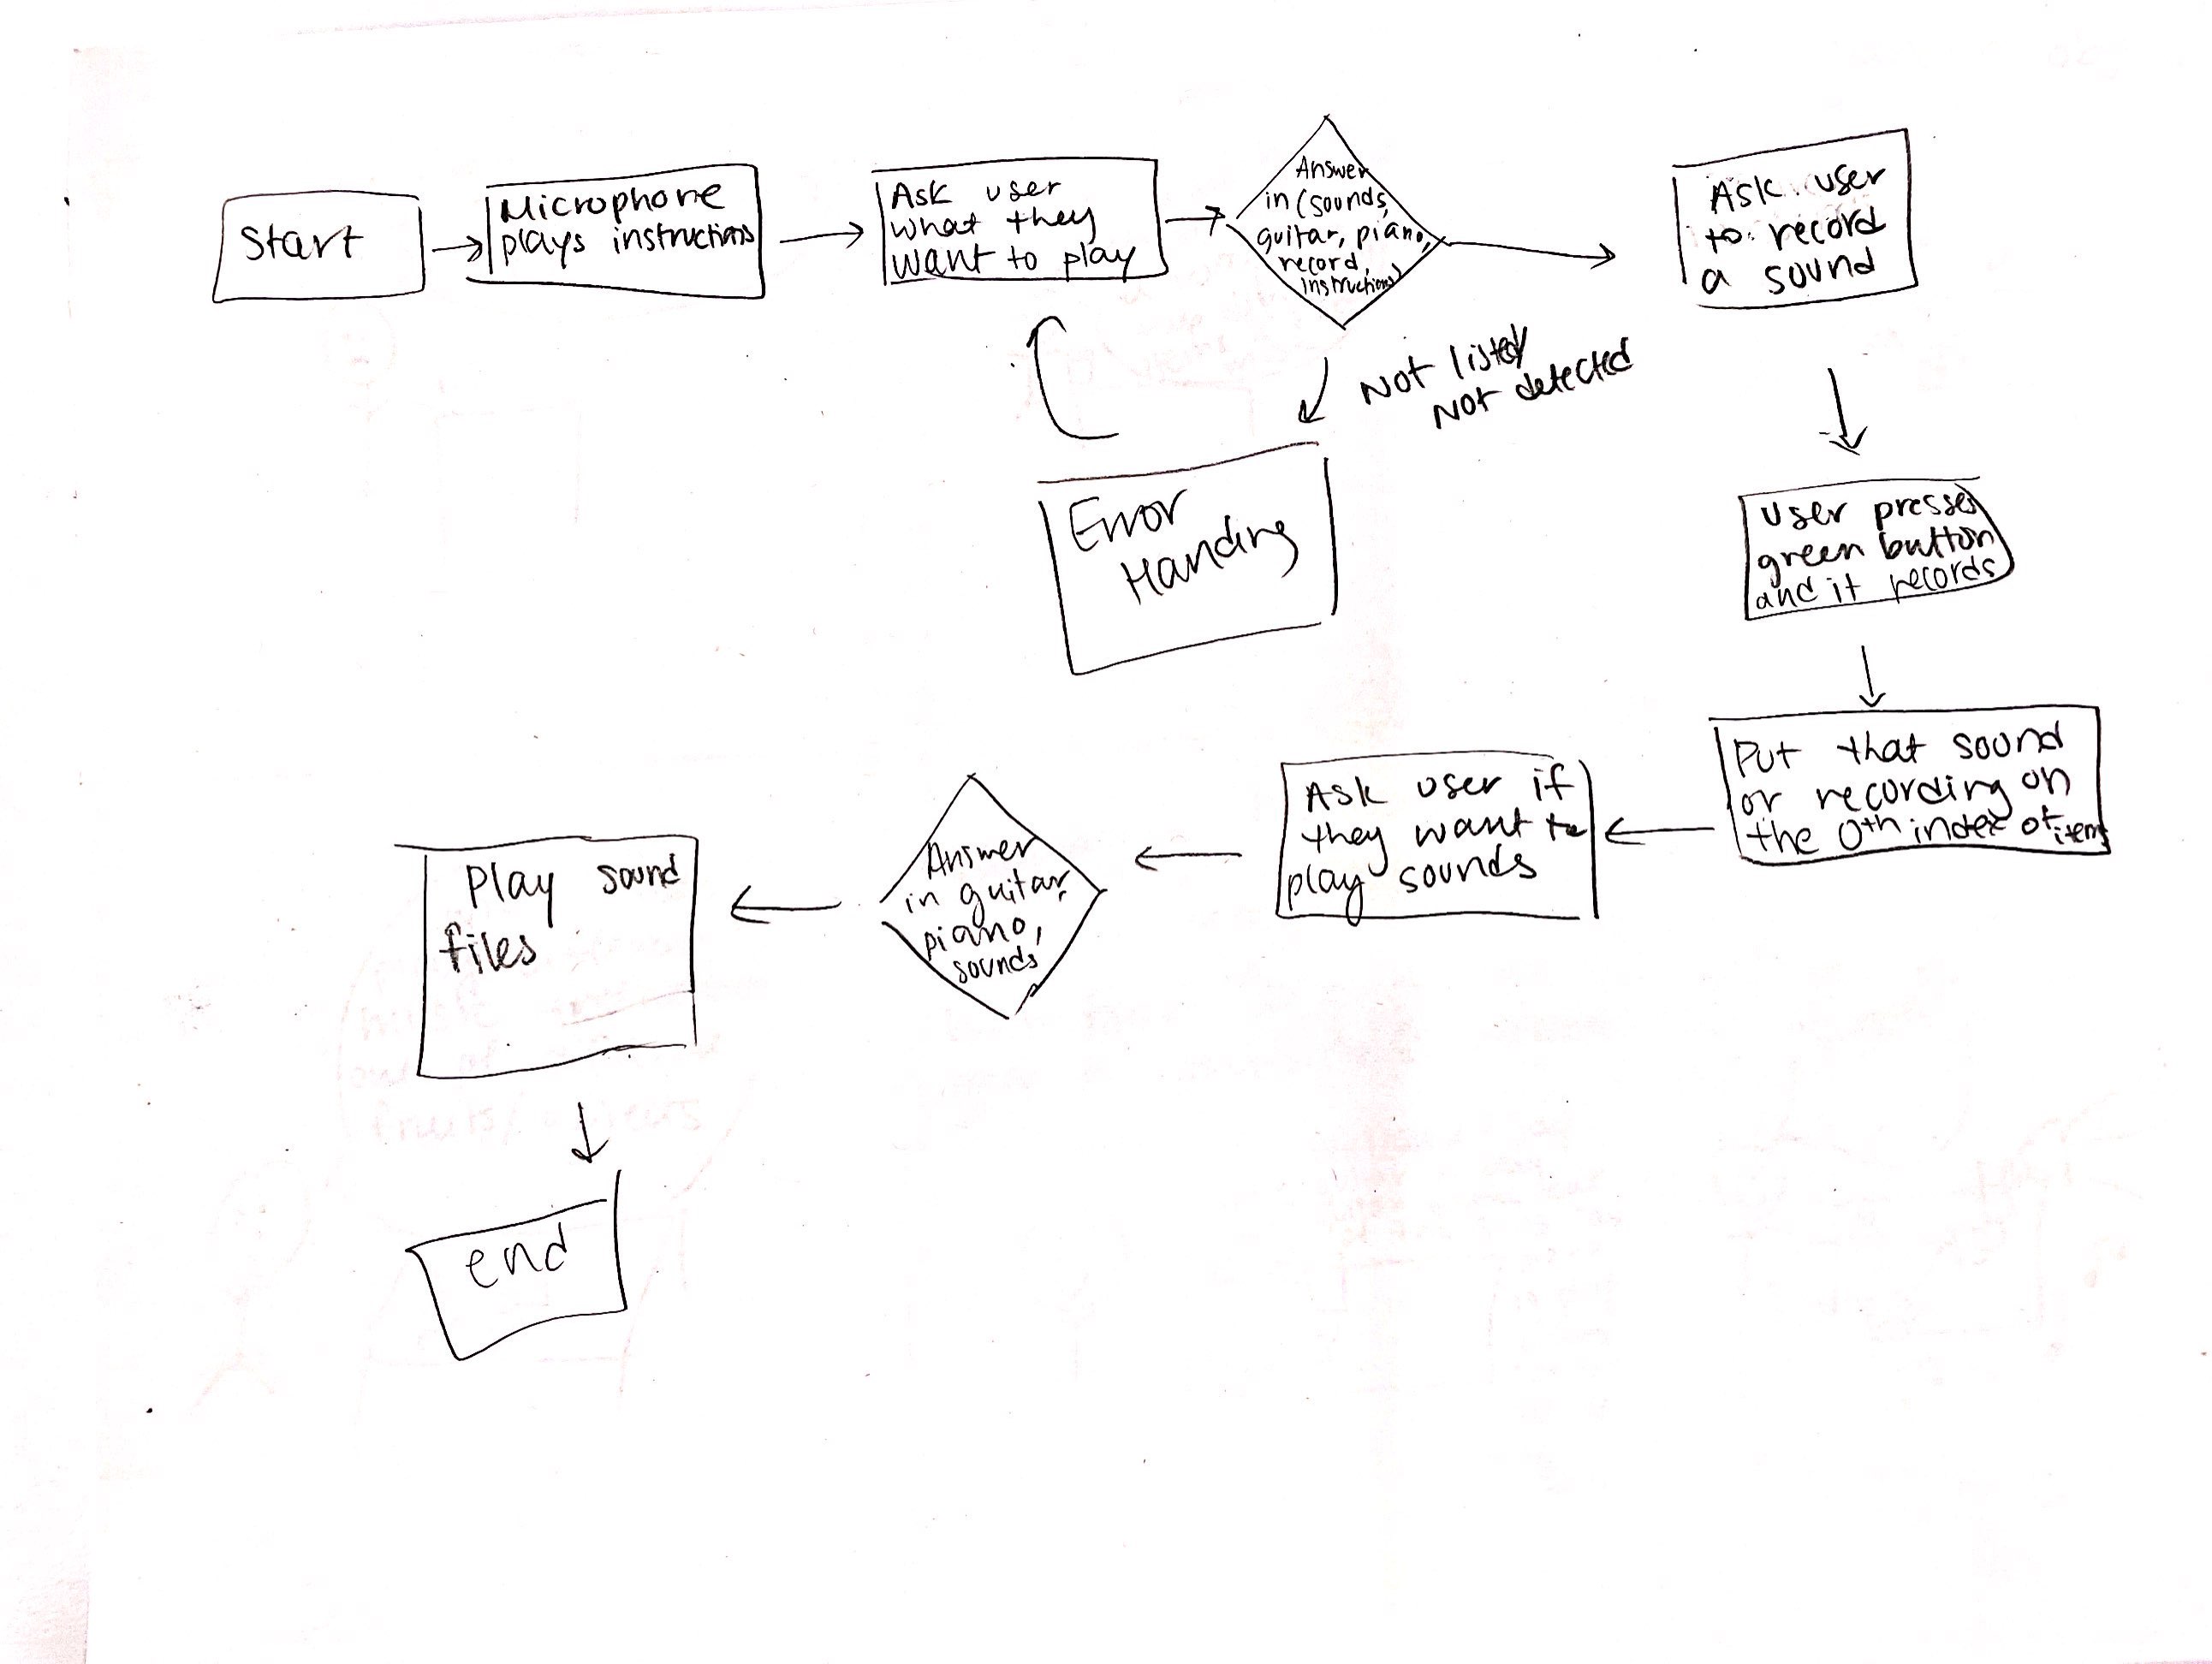 Start
Microphone
plays instructions
Ask user
what they
want to play
Answer
in (sounds,
guitar, piano,
record,
instructions)
Ask user
to record
a sound
Not listed/
Not detected
Error
Handing
User presses
green button
and it records
Put that sound
or recording on
the 0th index of items
Ask user if
they want to
play sounds
Answer
in guitar,
piano,
sounds
Play sound
files
end